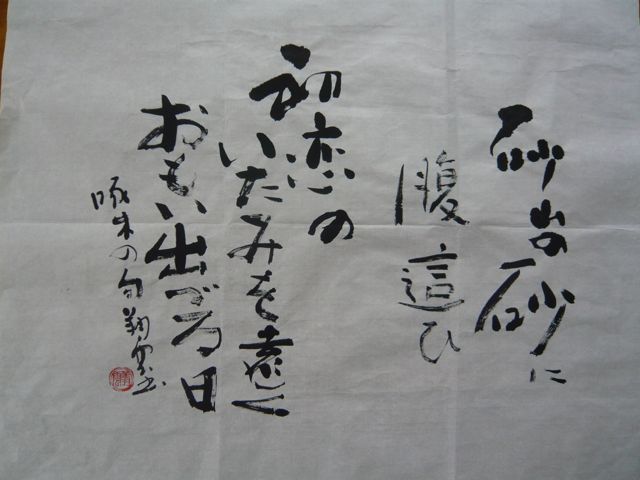 砂山の砂に
腹這ひ
初恋の
いたみを遠く
おもい出づる日
啄木の句